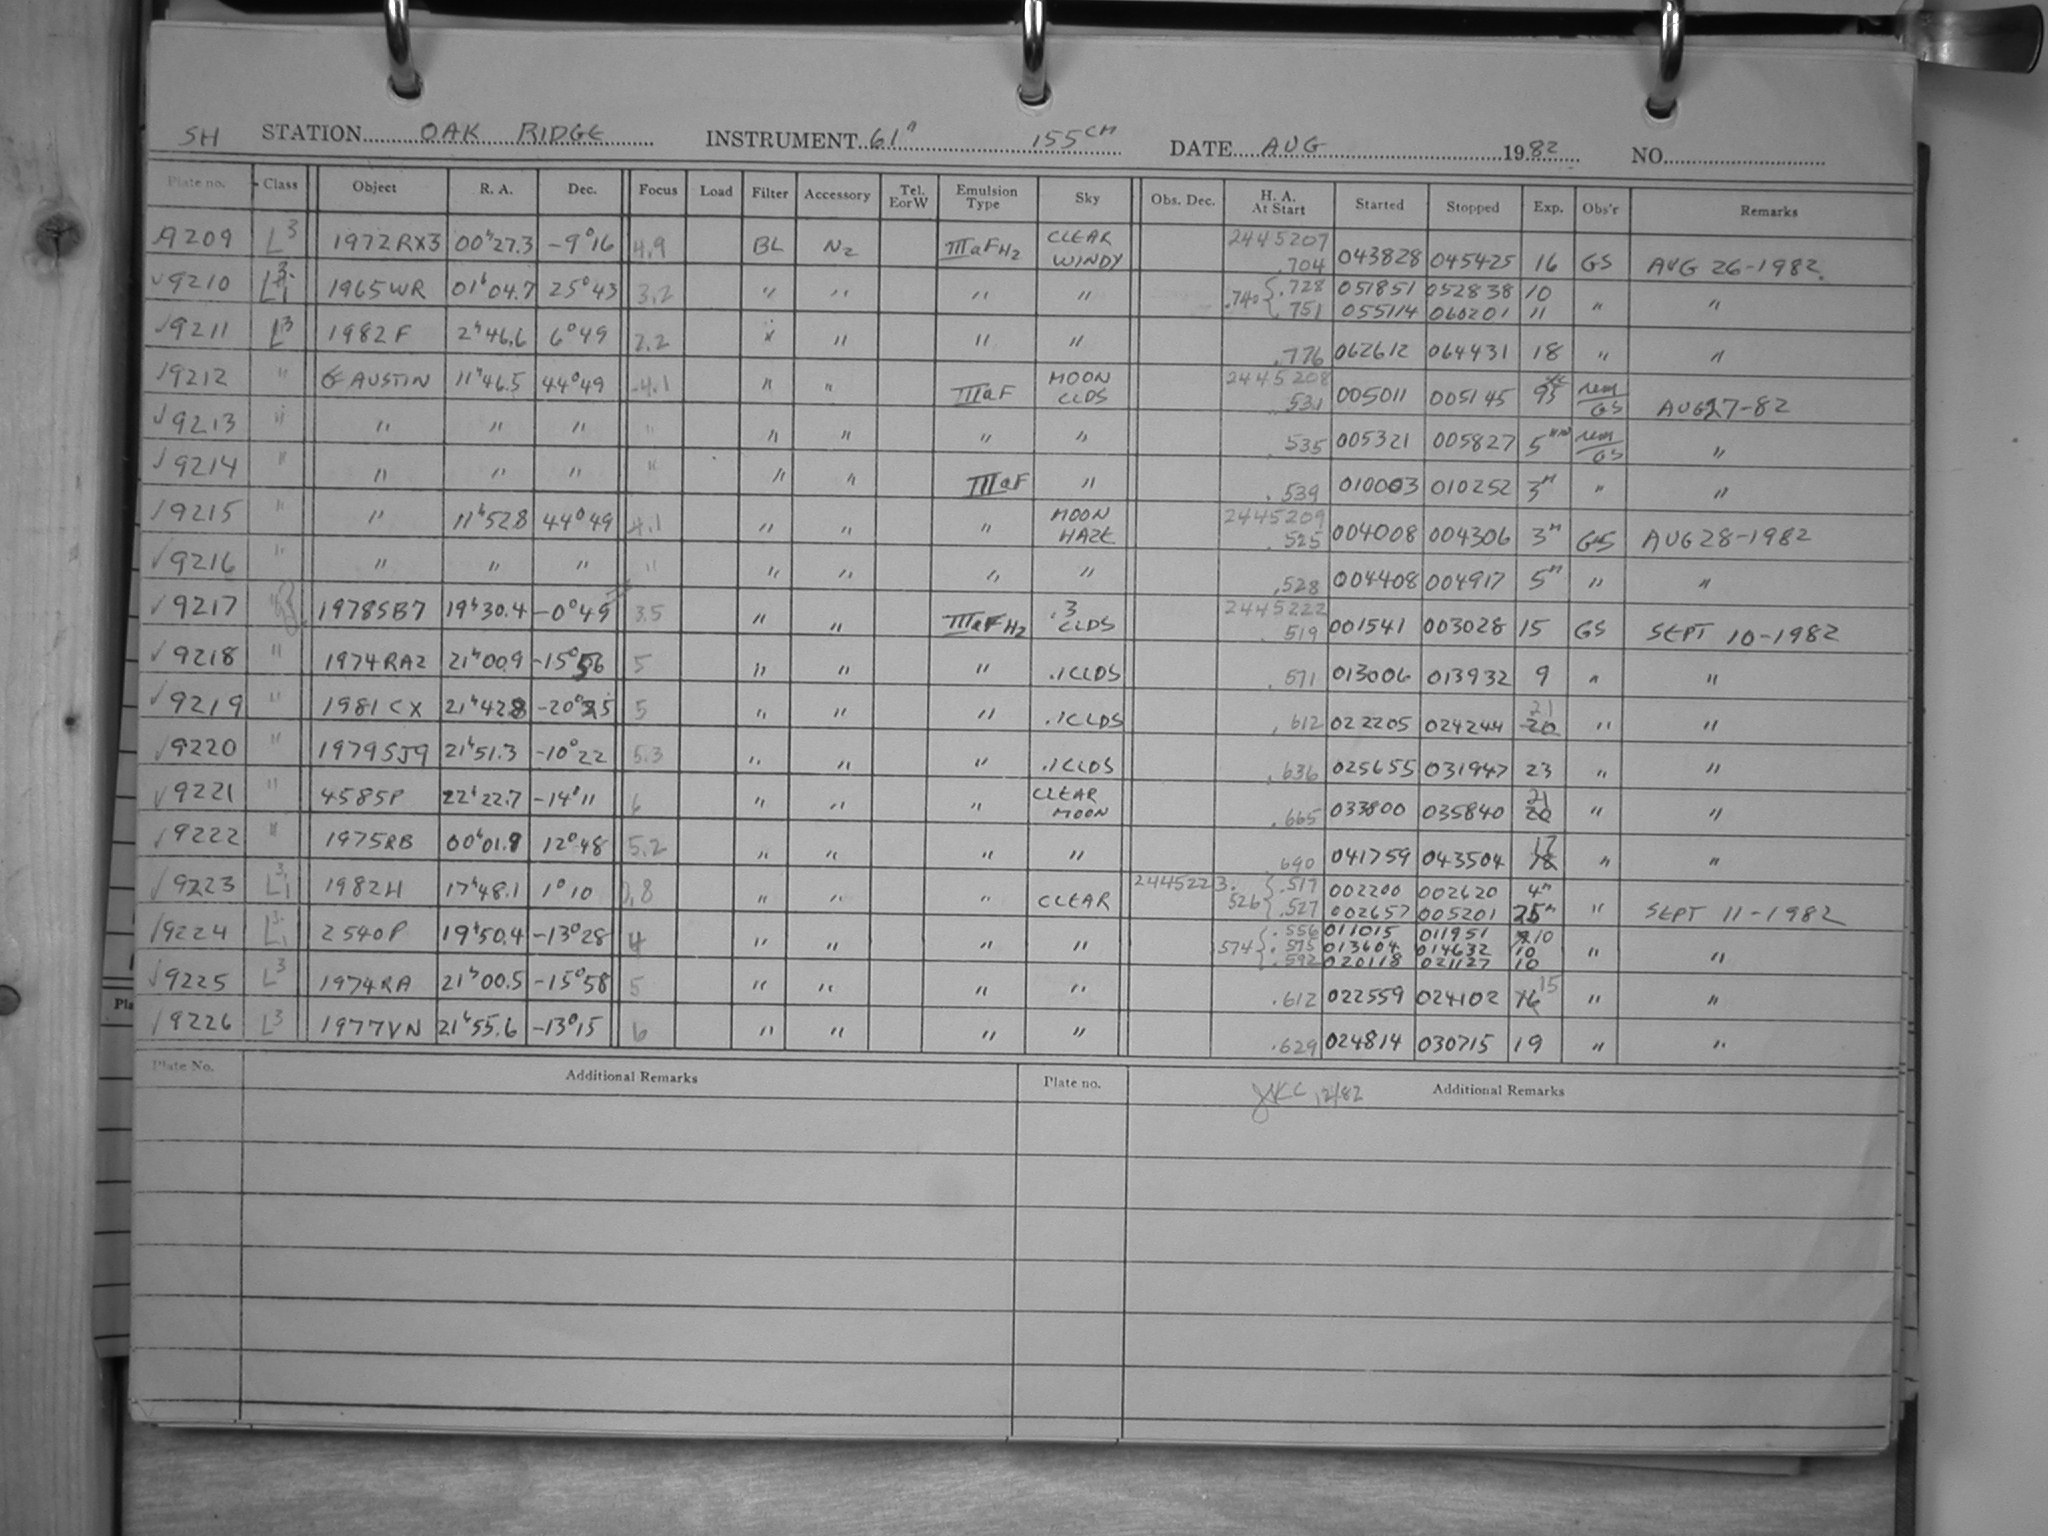 SH STATION OAK RIDGE INSTRUMENT 61" 155CM DATE AUG 1982 NO.
Plate no. Class Object R. A. Dec. Focus Load Filter Accessory Tel. EorW Emulsion Type Sky Obs. Dec. H. A. At Start Started Stopped Exp. Obs'r Remarks
9209 L3 1972RX3 00h27.3 -9°16 4.9 BL N2 IIIaFH2 CLEAR WINDY 2445207 .704 043828 045425 16 GS AUG 26-1982
9210 L3 1 1965WR 01h04.7 25°43 3.2 " " " " .740 { .728 051851 052838 10 " "
.751 055114 060201 11
9211 L3 1982F 2h46.6 6°49 2.2 " " " .776 062612 064431 18 " "
9212 " AUSTIN 11h46.5 44°49 4.1 " " IIIaF MOON CLDS 2445208 .531 005011 005145 GS AUG27-82
9213 " " " " " " " " " .535 005321 005827 5m GS "
9214 " " " " " " " IIIaF " .539 010003 010252 3m " "
9215 " " 11h52.8 44°49 4.1 " " " MOON HAZE 2445209 .525 004008 004306 3m GS AUG28-1982
9216 " " " " " " " " " .528 004408 004917 5m " "
9217 1978SB7 19h30.4 -0°49 3.5 " " IIIaFH2 .3 CLDS 2445222 .519 001541 003028 15 GS SEPT 10-1982
9218 " 1974RA2 21h00.9 -15°56 5 " " " .1CLDS .571 013006 013932 9 " "
9219 " 1981CX 21h42.8 -20°25 5 " " " .1CLDS .612 022205 024244 21 20 " "
9220 " 1979SJ9 21h51.3 -10°22 5.3 " " " .1CLDS .636 025655 031947 23 " "
9221 " 4585P 22h22.7 -14°11 6 " " " CLEAR MOON .665 033800 035840 21 20 " "
9222 " 1975RB 00h01.9 12°48 5.2 " " " " .690 041759 043504 17 18 " "
9223 L3 1 1982H 17h48.1 1°10 0.8 " " " CLEAR 2445223. 526 { .517 002200 002620 4m " SEPT 11-1982
.527 002657 005201 25m
9224 L3 1 2540P 19h50.4 -13°28 4 " " " " .574 { .556 011015 011951 10 " "
.575 013604 014632 10
.592 020118 021127 10
9225 L3 1974RA 21h00.5 -15°58 5 " " " " .612 022559 024102 16 15 " "
9226 L3 1977VN 21h55.6 -13°15 6 " " " " .629 024814 030715 19 " "
Plate No. Additional Remarks Plate no. Additional Remarks
12/82
Pla